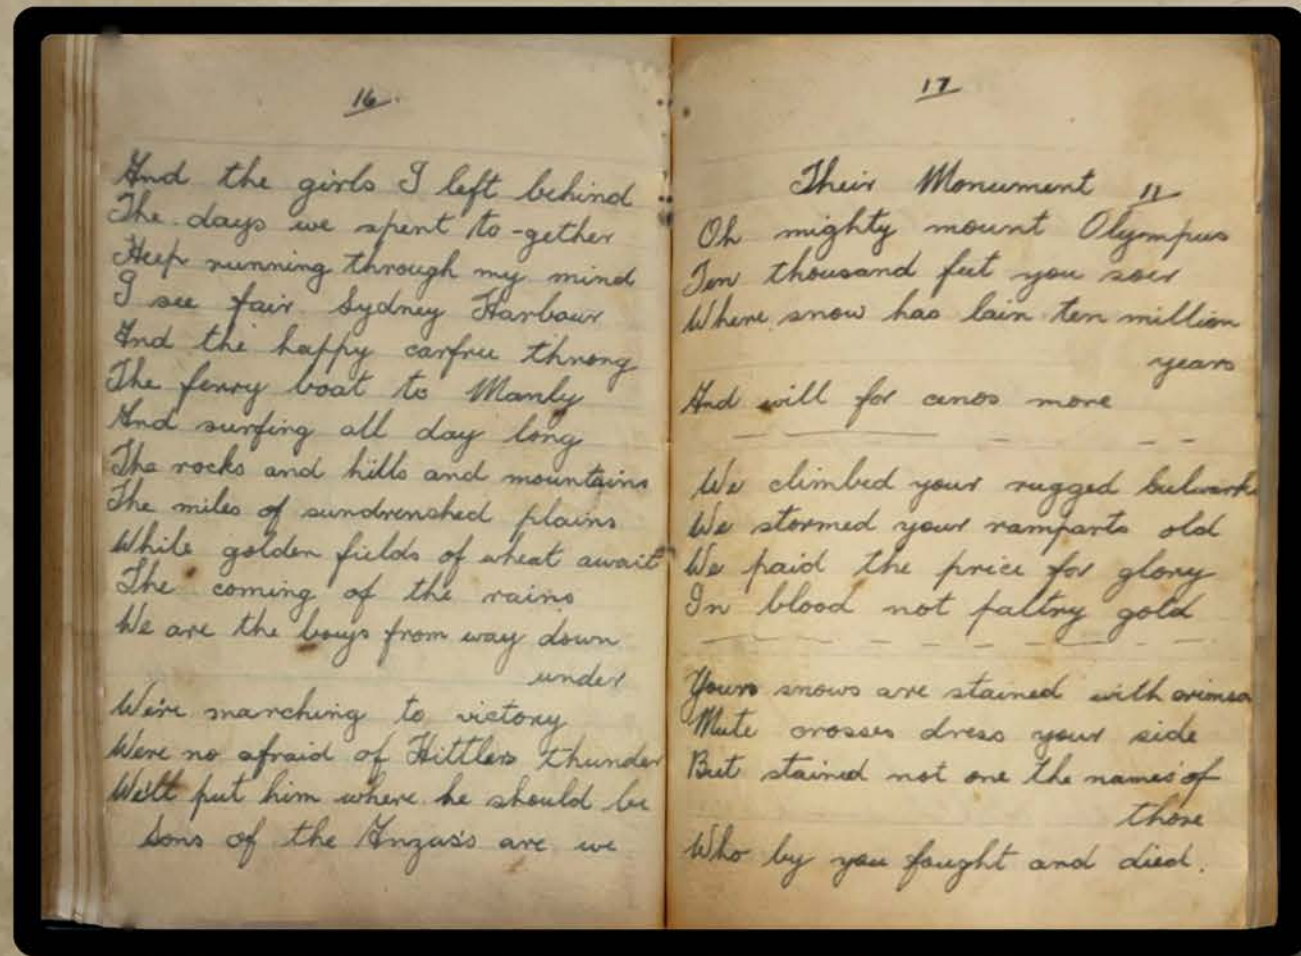 16
And the girls I left behind
The days we spent to-gether
Keep running through my mind
I see fair Sydney Harbour
And the happy carfree throng
The ferry boat to Manly
And surfing all day long
The rocks and hills and mountains
The miles of sundrenched plains
While golden fields of wheat await
The coming of the rains
We are the boys from way down
under
We're marching to victory
Were no afraid of Hittlers thunder
We'll put him where he should be
Sons of the Anzacs are we
17
Their Monument 11
Oh mighty mount Olympus
Ten thousand feet you soar
Where snow has lain ten million
years
And will for more
We climbed your rugged bulwarks
We stormed your ramparts old
We paid the price for glory
In blood not paltry gold
Yours snows are stained with crimson
Mute crosses dress your side
But stained not one the names of
those
Who by you fought and died.